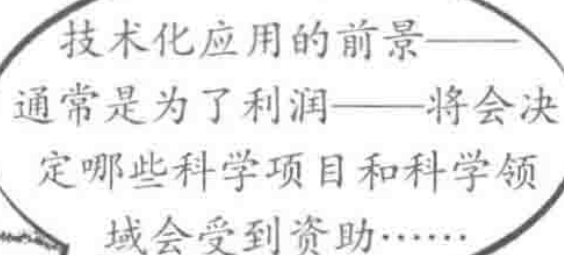 技术化应用的前景——
通常是为了利润——将会决
定哪些科学项目和科学领
域会受到资助……